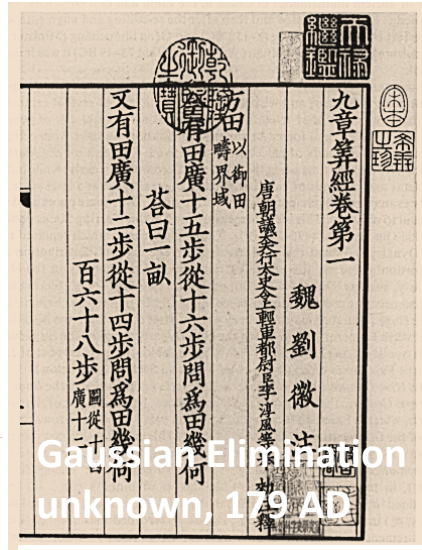 九章筭經卷第一
魏劉徽注
唐朝議大夫行太史令上輕車都尉臣李淳風等奉勑注釋
方田以御田疇界域
今有田廣十五步從十六步問爲田幾何
荅曰一畝
又有田廣十二步從十四步問爲田幾何
百六十八步圖從十四廣十二
天祿繼鑑
乾隆御覽之寶
Gaussian Elimination
unknown, 179 AD